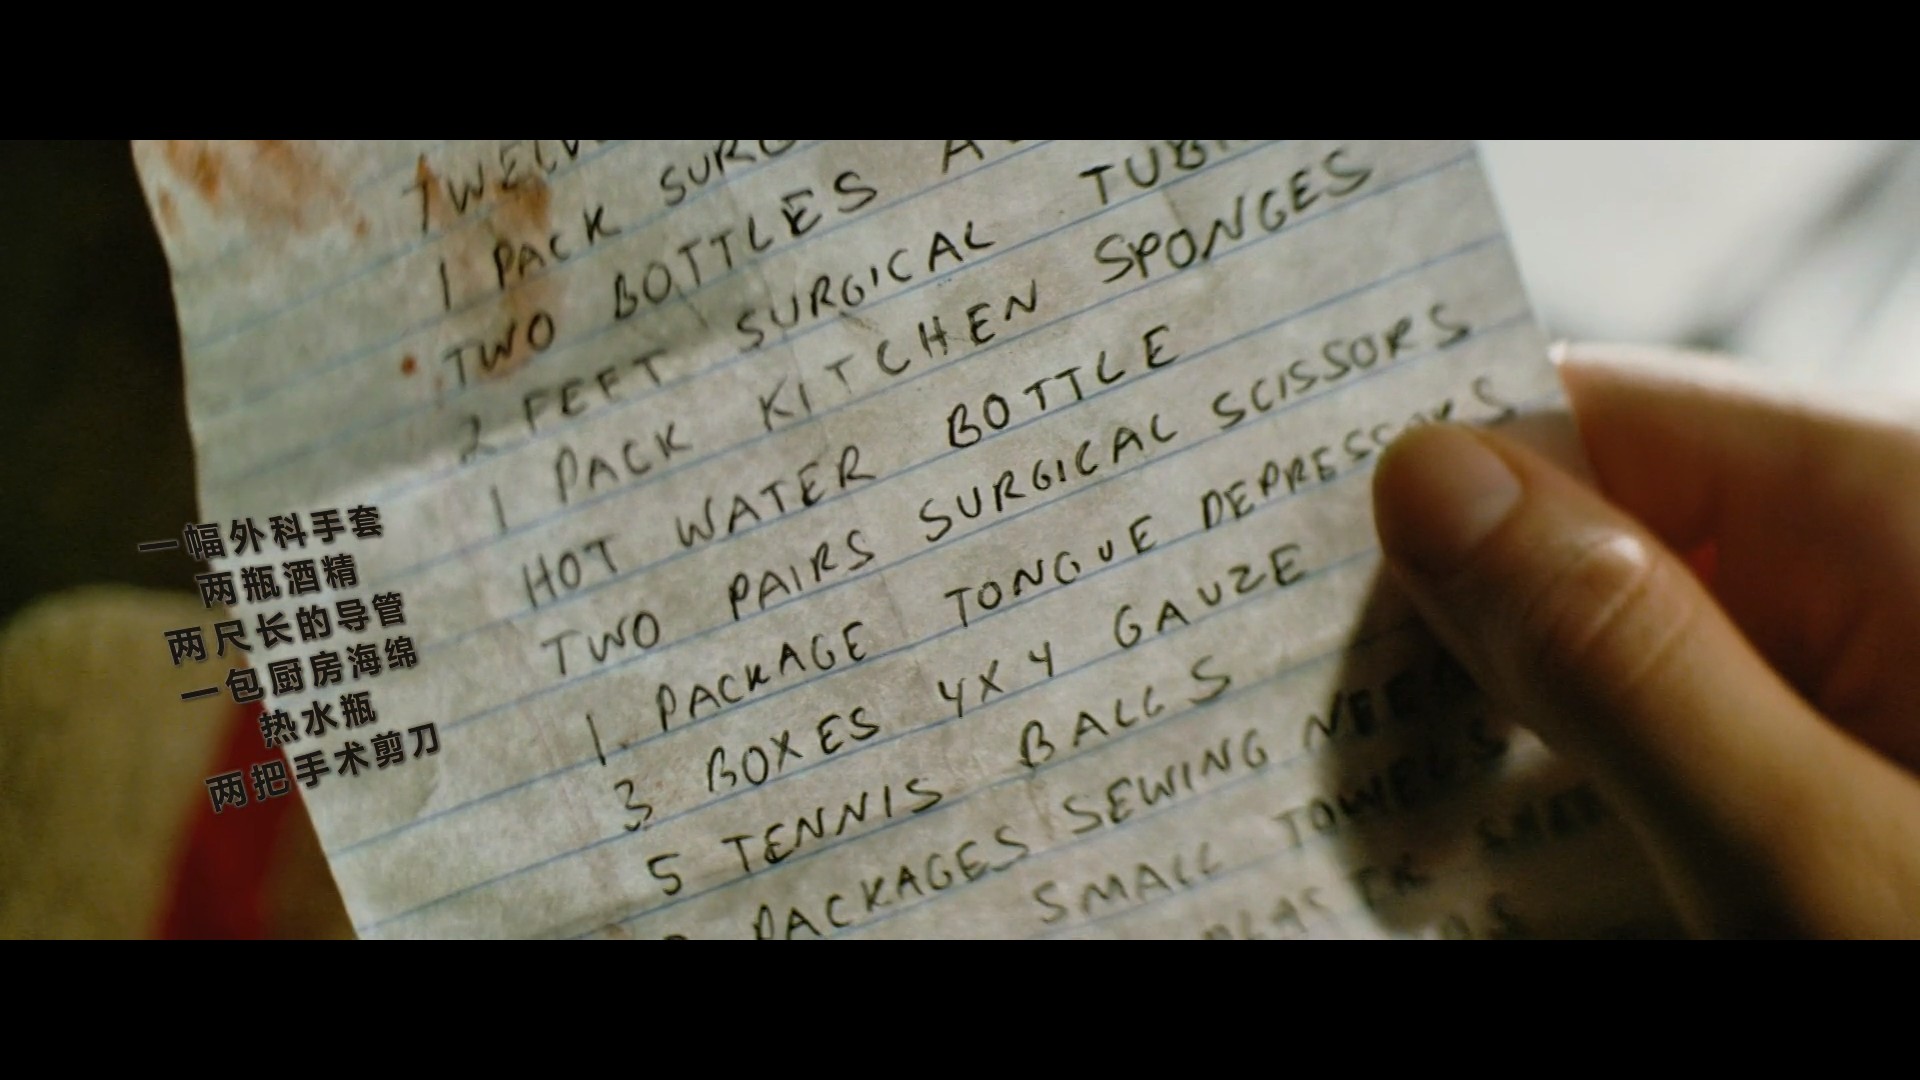 1 PACK
TWO BOTTLES
2 FEET SURGICAL
1 PACK KITCHEN SPONGES
HOT WATER BOTTLE
TWO PAIRS SURGICAL SCISSORS
1 PACKAGE TONGUE DEPRESSORS
3 BOXES 4X4 GAUZE
5 TENNIS BALLS
PACKAGES SEWING
SMALL TOWELS
一幅外科手套
两瓶酒精
两尺长的导管
一包厨房海绵
热水瓶
两把手术剪刀